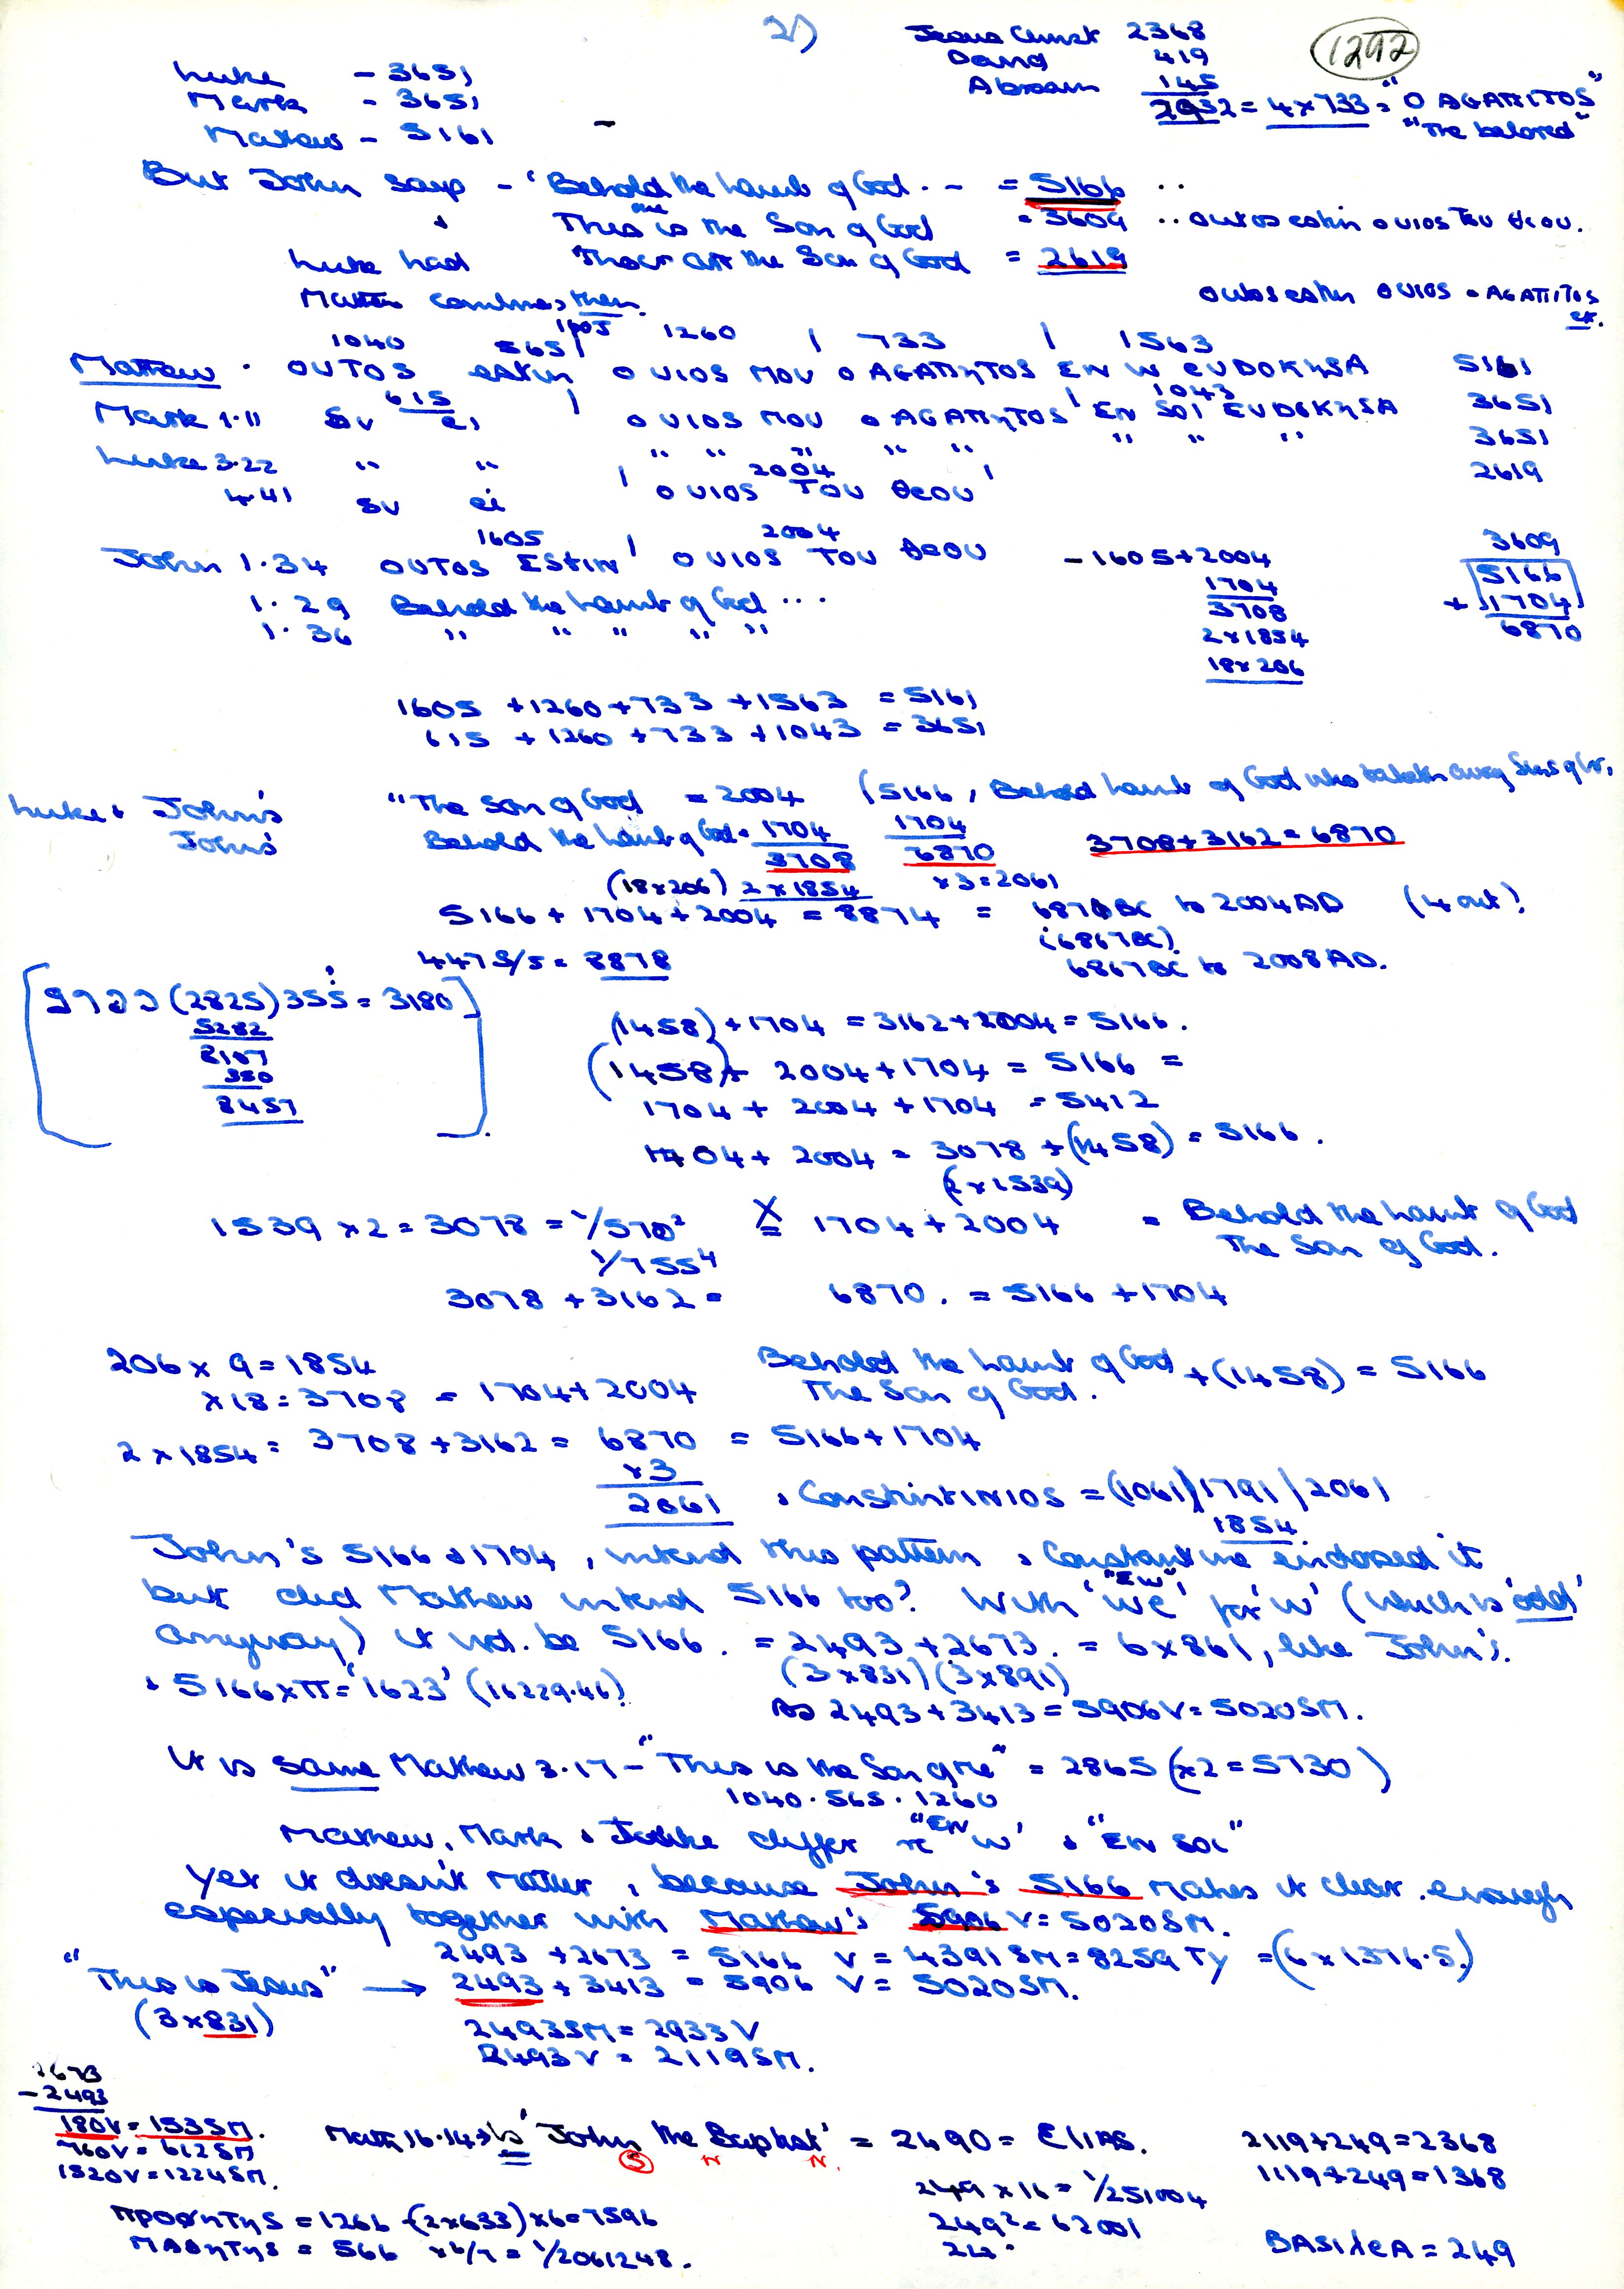 2/)
Jesus Christ 2368
David 419
Abraam 145
2932 = 4x733 = "O AGAPITOS"
"The beloved"
1292
Luke - 3651
Mark - 3651
Mathew - 5161
But John says - 'Behold the Lamb of God . - = 5166 ..
+ This is the Son of God = 3609 .. outos estin o uios Tou theou.
Luke had Thou art the Son of God = 2619
Matthew combines them. outos estin o uios o AGAPITOS
1040 565 1605 1260 | 733 | 1563
Matthew . OUTOS estin o uios mou o AGAPHTOS EN W EUDOKHSA 5161
615 1043
Mark 1.11 Su ei | o uios mou o AGAPHTOS EN SOI EUDOKHSA 3651
Luke 3.22 " " | " " " " " " " " 3651
2004
4.41 su ei | o uios Tou theou 2619
1605 | 2004
John 1.34 OUTOS ESTIN o uios Tou theou - 1605+2004 3609
1.29 Behold the Lamb of God ... 1704 5166
1.36 " " " " " 3708 + 1704
2x1854 6870
18x206
1605 + 1260 + 733 + 1563 = 5161
615 + 1260 + 733 + 1043 = 3651
Luke & John's "The Son of God = 2004 (5166, Behold Lamb of God who taketh away Sins of W.
John's Behold the Lamb of God = 1704 1704
3708 6870 3708+3162 = 6870
(18x206) 2x1854 x3=2061
5166 + 1704 + 2004 = 8874 = 6870BC to 2004AD (4 out!
(6867BC)
4475/5 = 8878 6867BC to 2008AD.
(2825) 355 = 3180
5282
8107
350
8457
(1458) + 1704 = 3162 + 2004 = 5166.
(1458) + 2004 + 1704 = 5166 =
1704 + 2004 + 1704 = 5412
1704 + 2004 = 3078 + (1458) = 5166.
(2x1539)
1539 x 2 = 3078 = 1/570² X = 1704 + 2004 = Behold the Lamb of God
1/755⁴ The Son of God.
3078 + 3162 = 6870. = 5166 + 1704
206 x 9 = 1854 Behold the Lamb of God + (1458) = 5166
x18 = 3708 = 1704 + 2004 The Son of God.
2 x 1854 = 3708 + 3162 = 6870 = 5166 + 1704
x3
2061 , ConstantINIOS = (1061)/1791/2061
1854
John's 5166 & 1704, intend this pattern & Constantine endorsed it
but did Mathew intend 5166 too? With 'we' "EW" for 'w' (which is 'odd'
anyway) it wd. be 5166. = 2493 + 2673. = 6x861, like John's.
& 5166xπ = '1623' (16229.46) (3x831)(3x891)
As 2493 + 3413 = 5906V = 5020SM.
It is same Mathew 3.17 - "This is the Son of me" = 2865 (x2 = 5730)
1040 . 565 . 1260
Mathew, Mark & Luke differ re "EN W' & "EN SOI"
Yet it doesn't matter, because John's 5166 makes it clear enough
especially together with Mathew's 5906V = 5020SM.
2493 + 2673 = 5166 V = 4391SM = 8259 Ty = (6x1376.5)
"This is Jesus" → 2493 + 3413 = 5906 V = 5020SM.
(3x831) 2493SM = 2933V
2493V = 2119SM.
2673
-2493
180V = 153SM.
760V = 612SM
1520V = 1224SM.
Matt 16.14 → is 'John the Baptist' = 2490 = ElIAS. 2119+249=2368
S N N. 1119+249=1368
249 x 16 = 1/251004
ΠΡΟΦHTHS = 1266 (2x633) x6 = 7596 249² = 62001
MAΘHTHS = 566 x6/7 = 1/2061248. BASIλeA = 249